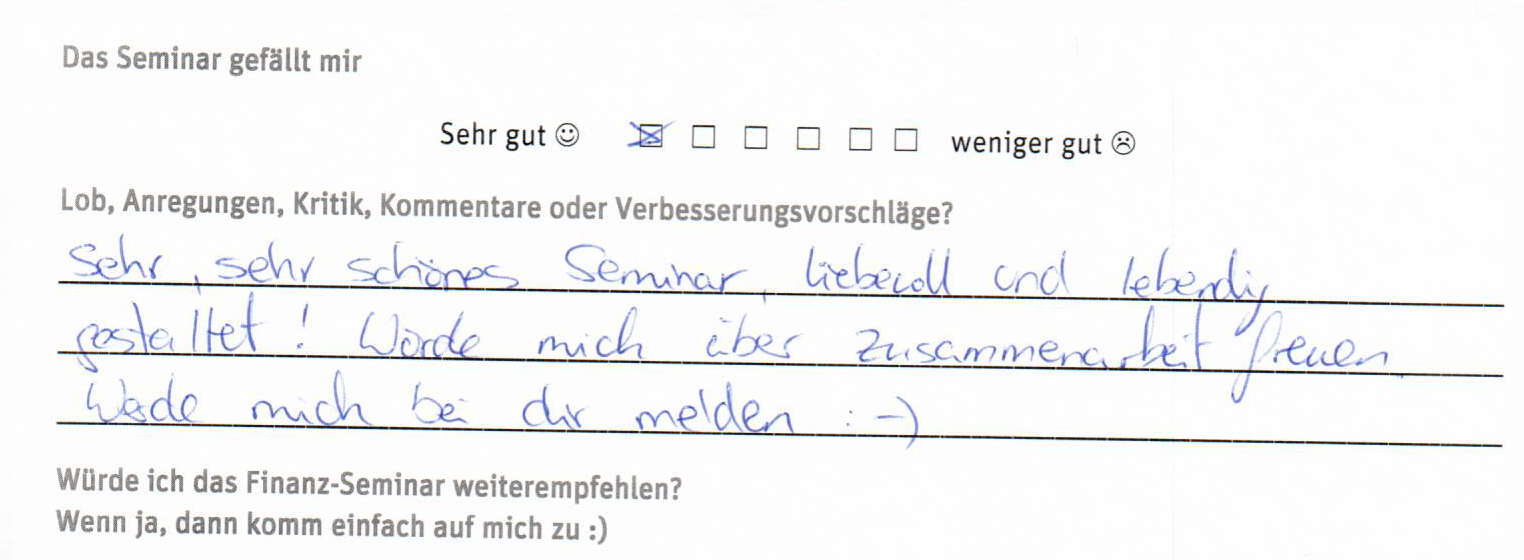 Das Seminar gefällt mir
Sehr gut ☺ ☒ ☐ ☐ ☐ ☐ ☐ weniger gut ☹
Lob, Anregungen, Kritik, Kommentare oder Verbesserungsvorschläge?
Sehr, sehr schönes Seminar, liebevoll und lebendig
gestaltet! Würde mich über Zusammenarbeit freuen.
Werde mich bei dir melden :-)
Würde ich das Finanz-Seminar weiterempfehlen?
Wenn ja, dann komm einfach auf mich zu :)